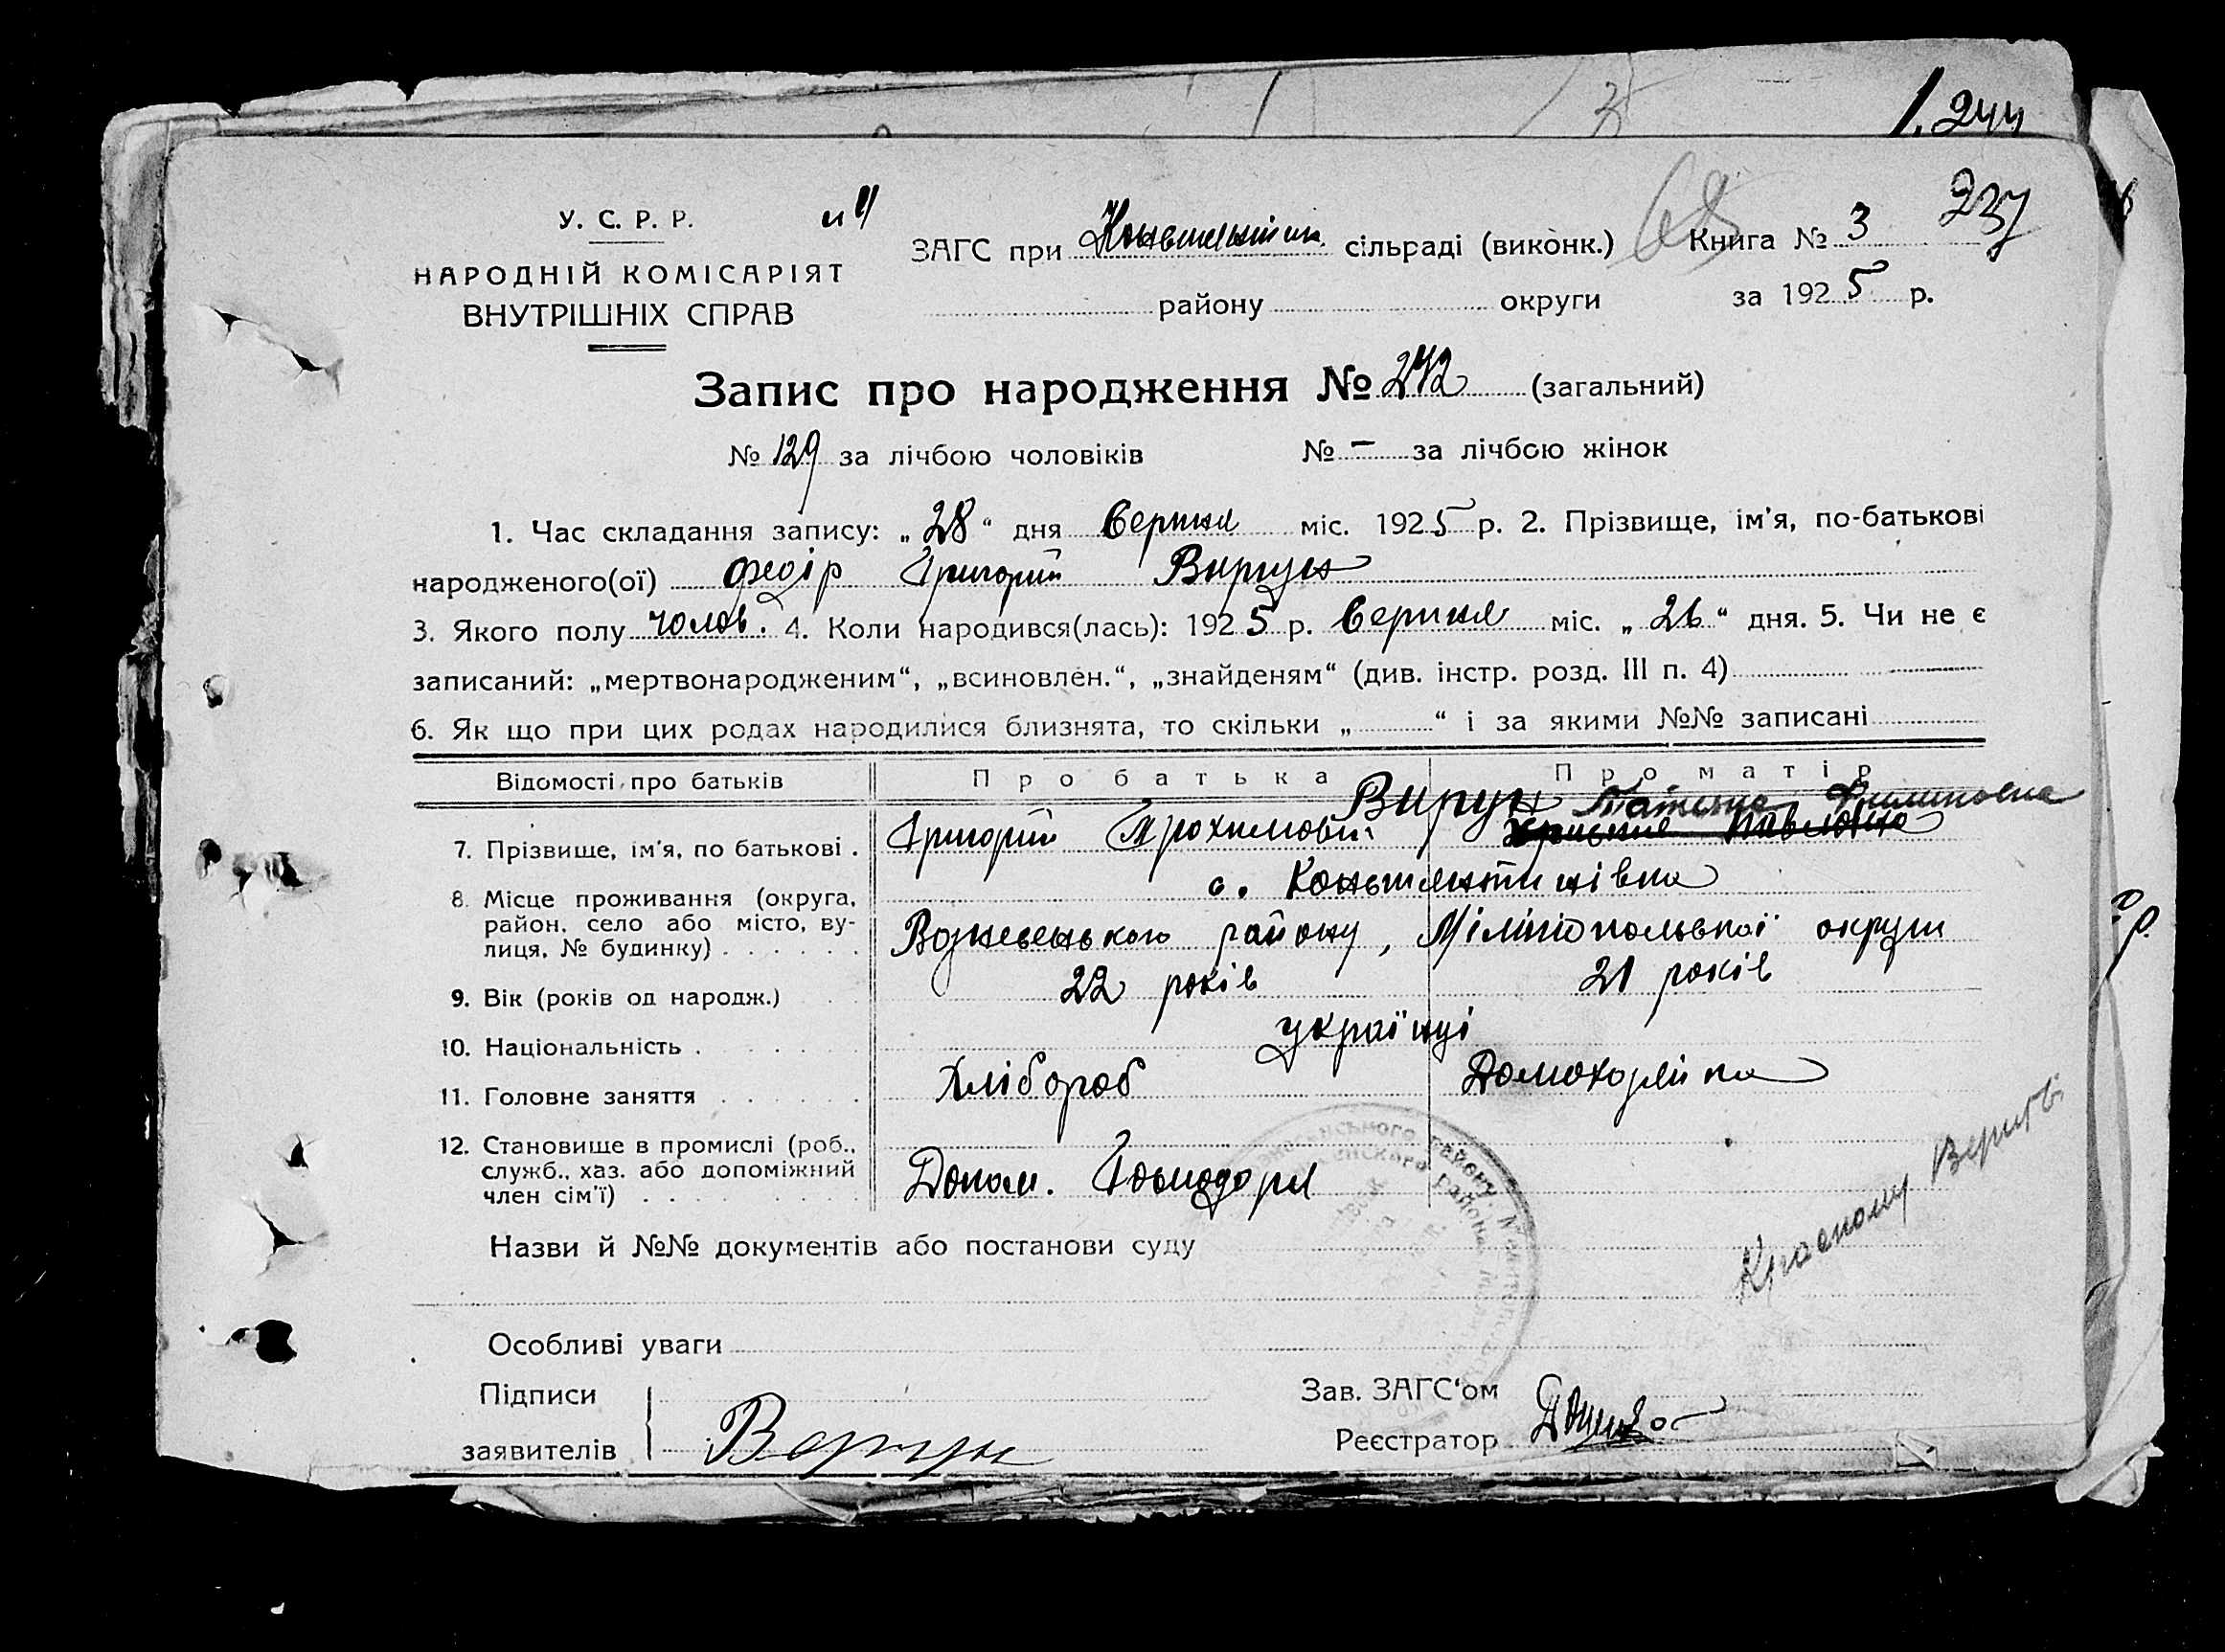 1.244
У. С. Р. Р.
НАРОДНІЙ КОМІСАРІЯТ
ВНУТРІШНІХ СПРАВ
237
ЗАГС при сільраді (виконк.) Книга № 3
району округи за 1925 р.
Запис про народження № 242 (загальний)
№ 129 за лічбою чоловіків № – за лічбою жінок
1. Час складання запису: „28“ дня Вересня міс. 1925 р. 2. Прізвище, ім'я, по-батькові
народженого(ої) Федір Григорій Виргун
3. Якого полу чолов. 4. Коли народився(лась): 1925 р. Вересня міс. „26“ дня. 5. Чи не є
записаний: „мертвонародженим“, „всиновлен.“, „знайденям“ (див. інстр. розд. III п. 4)
6. Як що при цих родах народилися близнята, то скільки „ “ і за якими №№ записані
Відомості про батьків Про батька Про матір
Виргун Татьяна Филиповна
7. Прізвище, ім'я, по батькові . Григорій Трохимович Павловна
8. Місце проживання (округа, район, село або місто, вулиця, № будинку) . . . . . .
с. Константинівка
Вознесенського району, Мелітопольської округи
9. Вік (років од народж.) 22 років 21 років
10. Національність . українці
11. Головне заняття Хлібороб Домохазяйка
12. Становище в промислі (роб., служб., хаз. або допоміжний член сім'ї) Допом. Господаря
Назви й №№ документів або постанови суду
Особливі уваги
Підписи
заявителів Вергун
Зав. ЗАГС'ом
Реєстратор